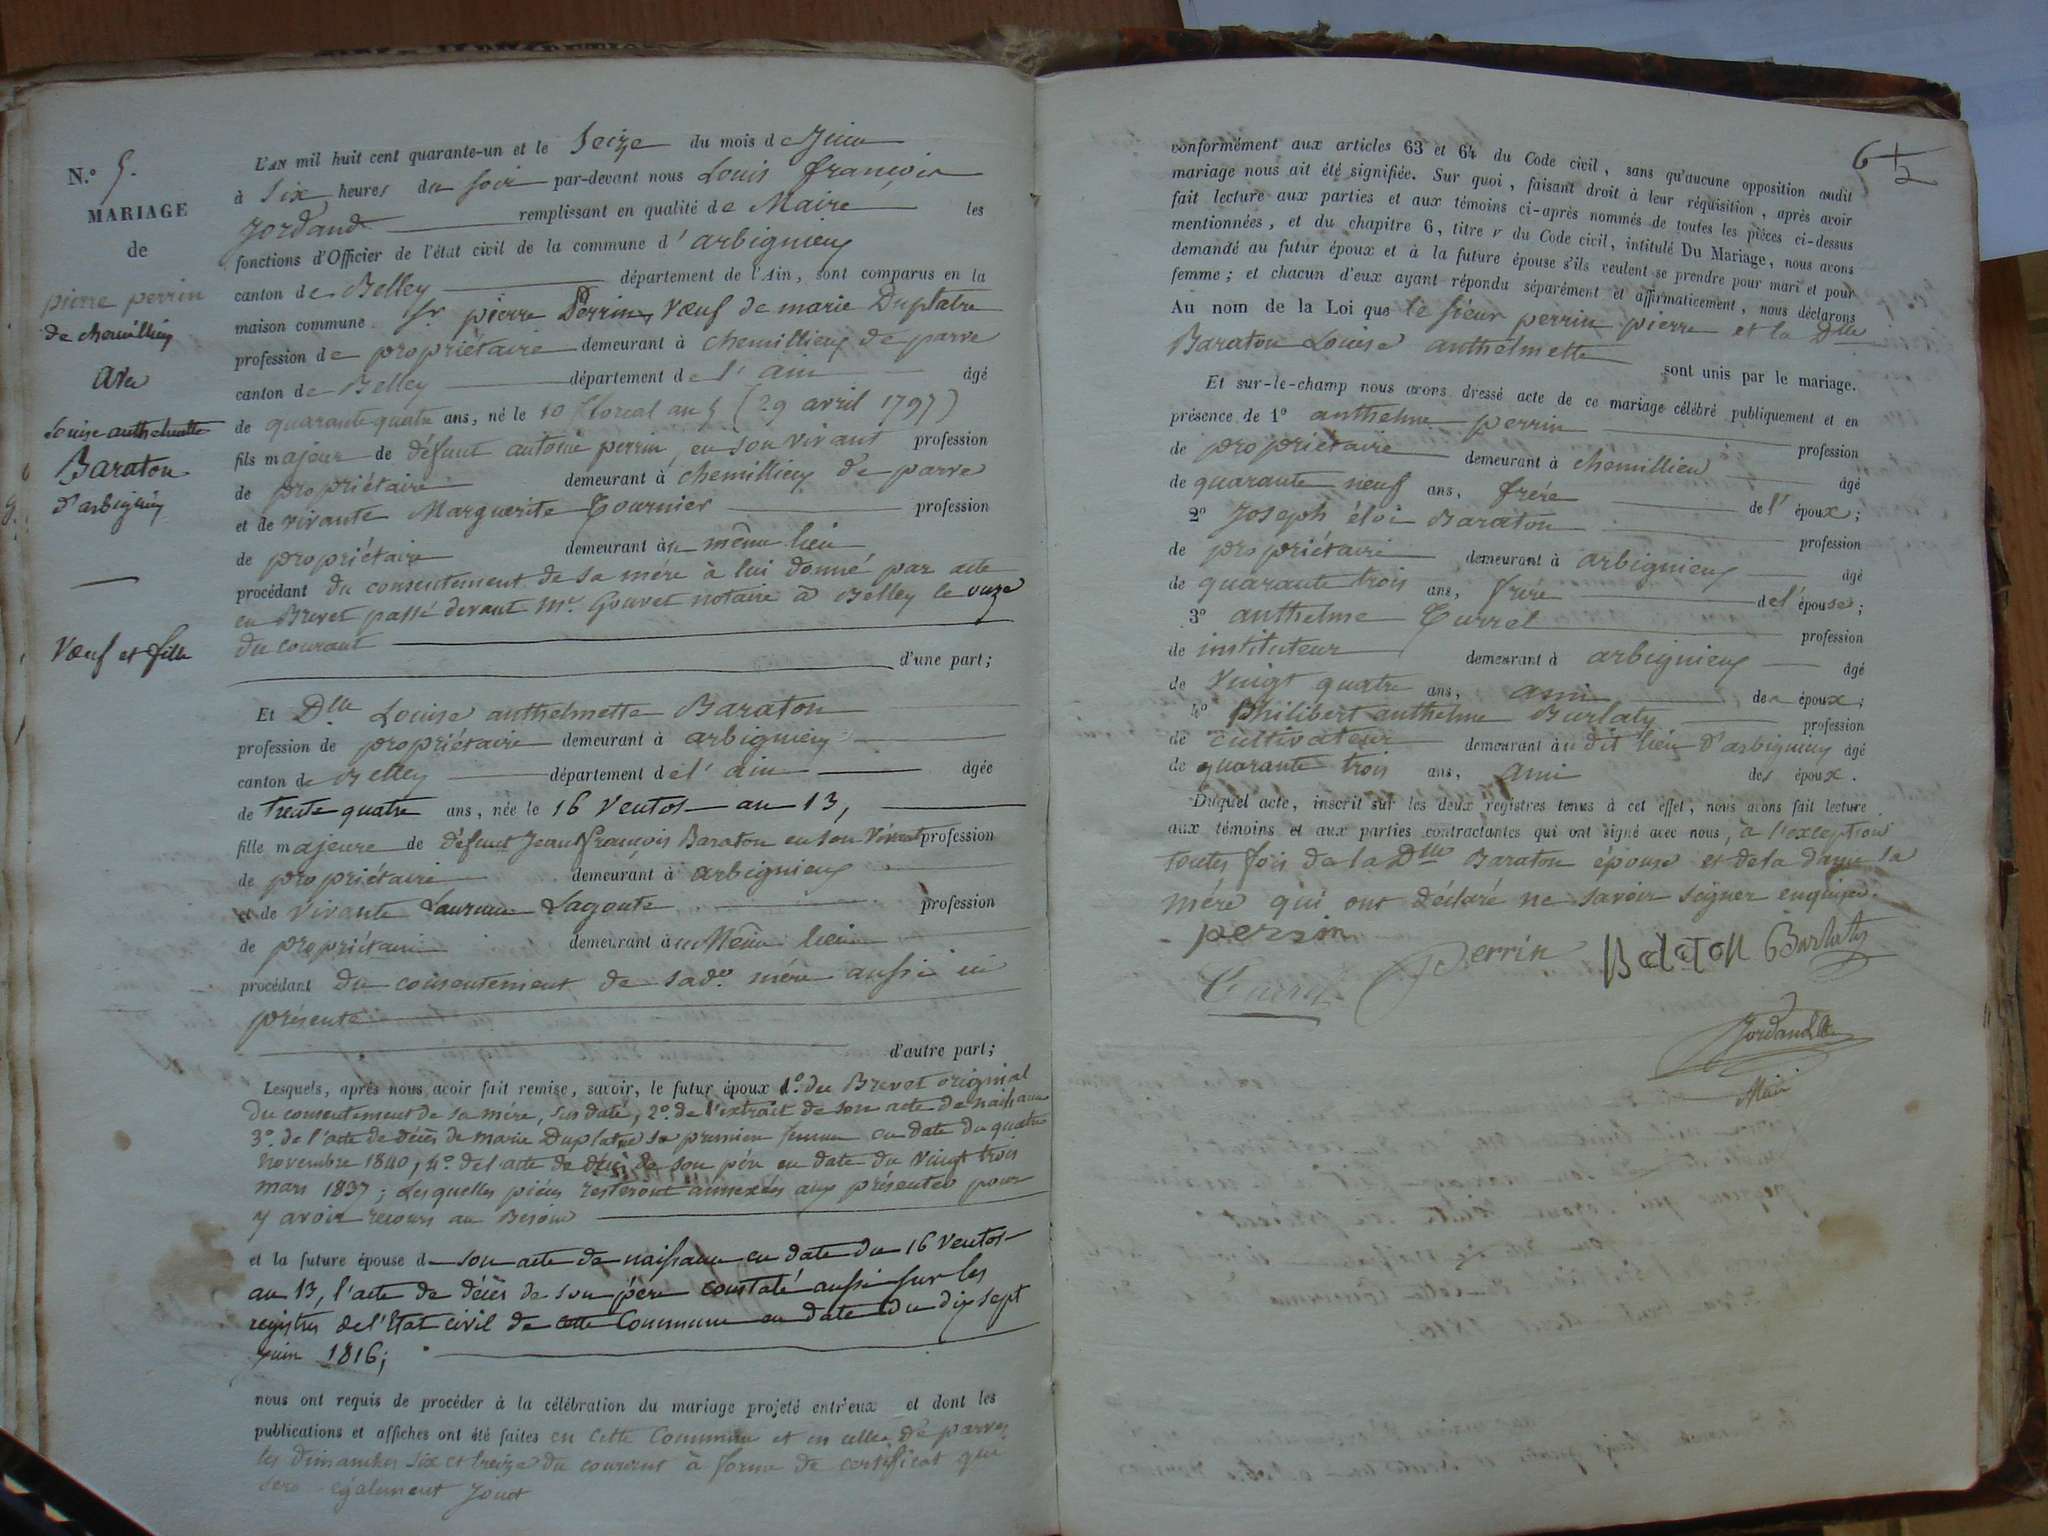 N.º 5.
MARIAGE
de
pierre perrin
de chemillieu
avec
Louise anthelmette
Baraton
d'arbignieu
Vœuf et fille
L'AN mil huit cent quarante-un et le Seize du mois de Juin
à Six heures du soir par-devant nous Louis françois
Jordand remplissant en qualité de Maire les
fonctions d'Officier de l'état civil de la commune d'arbignieu
canton de Belley département de l'Ain, sont comparus en la
maison commune Sr pierre Perrin Vœuf de marie Duplatre
profession de propriétaire demeurant à chemillieu de parve
canton de Belley département de l'ain âgé
de quarante quatre ans, né le 10 floreal an 5 (29 avril 1797)
fils majeur de défunt antoine perrin, en son vivant profession
de propriétaire demeurant à chemillieu de parve
et de vivante Marguerite Tournier profession
de propriétaire demeurant au même lieu
procédant du consentement de sa mère à lui donné par acte
en Brevet passé devant Mr Gouvet notaire à Belley le onze
du courant
d'une part;
Et Dlle Louise anthelmette Baraton
profession de propriétaire demeurant à arbignieu
canton de Belley département de l'ain âgée
de trente quatre ans, née le 16 Ventos an 13,
fille majeure de défunt Jean François Baraton en son vivant profession
de propriétaire demeurant à arbignieu
et de vivante Laurence Lagoute profession
de propriétaire demeurant au Même lieu
procédant du consentement de sad.e mère aussi ici
présente
d'autre part;
Lesquels, après nous avoir fait remise, savoir, le futur époux 1º du Brevet original
du consentement de sa mère, sus daté, 2º. de l'extrait de son acte de naissance
3º. de l'acte de décès de marie Duplatre sa premiere femme en date du quatre
novembre 1840, 4º. de l'acte de décès de son père en date du Vingt trois
mars 1837; Lesquelles pièces resteront annexées aux présentes pour
y avoir recours au Besoin
et la future épouse de son acte de naissance en date du 16 Ventos
an 13, l'acte de décès de son père constaté aussi sur les
registres de l'Etat civil de cette Commune en date du dix sept
Juin 1816;
nous ont requis de procéder à la célébration du mariage projeté entr'eux et dont les
publications et affiches ont été faites en cette Commune et en celle de parves
les dimanches six et treize du courant à forme de certificat qui
sera également Joint
6 +/2
conformément aux articles 63 et 64 du Code civil, sans qu'aucune opposition audit
mariage nous ait été signifiée. Sur quoi, faisant droit à leur réquisition, après avoir
fait lecture aux parties et aux témoins ci-après nommés de toutes les pièces ci-dessus
mentionnées, et du chapitre 6, titre v du Code civil, intitulé Du Mariage, nous avons
demandé au futur époux et à la future épouse s'ils veulent se prendre pour mari et pour
femme; et chacun d'eux ayant répondu séparément et affirmativement, nous déclarons
Au nom de la Loi que le sieur perrin pierre et la Dlle
Baraton Louise anthelmette sont unis par le mariage.
Et sur-le-champ nous avons dressé acte de ce mariage célébré publiquement et en
présence de 1º anthelme perrin profession
de propriétaire demeurant à chemillieu âgé
de quarante neuf ans, frère de l'époux;
2º Joseph éloi Baraton profession
de propriétaire demeurant à arbignieu âgé
de quarante trois ans, frère de l'épouse;
3º anthelme Turrel profession
de instituteur demeurant à arbignieu âgé
de Vingt quatre ans, ami des époux;
4º Philibert anthelme Burlaty profession
de cultivateur demeurant au dit lieu d'arbignieu âgé
de quarante trois ans, ami des époux.
Duquel acte, inscrit sur les deux registres tenus à cet effet, nous avons fait lecture
aux témoins et aux parties contractantes qui ont signé avec nous, à l'exception
toutes fois de la Dlle Baraton épouse et de la dame sa
mère qui ont déclaré ne savoir seigner enquises.
perrin
Perrin Baraton Burlaty
Turrel
Jordand
Maire